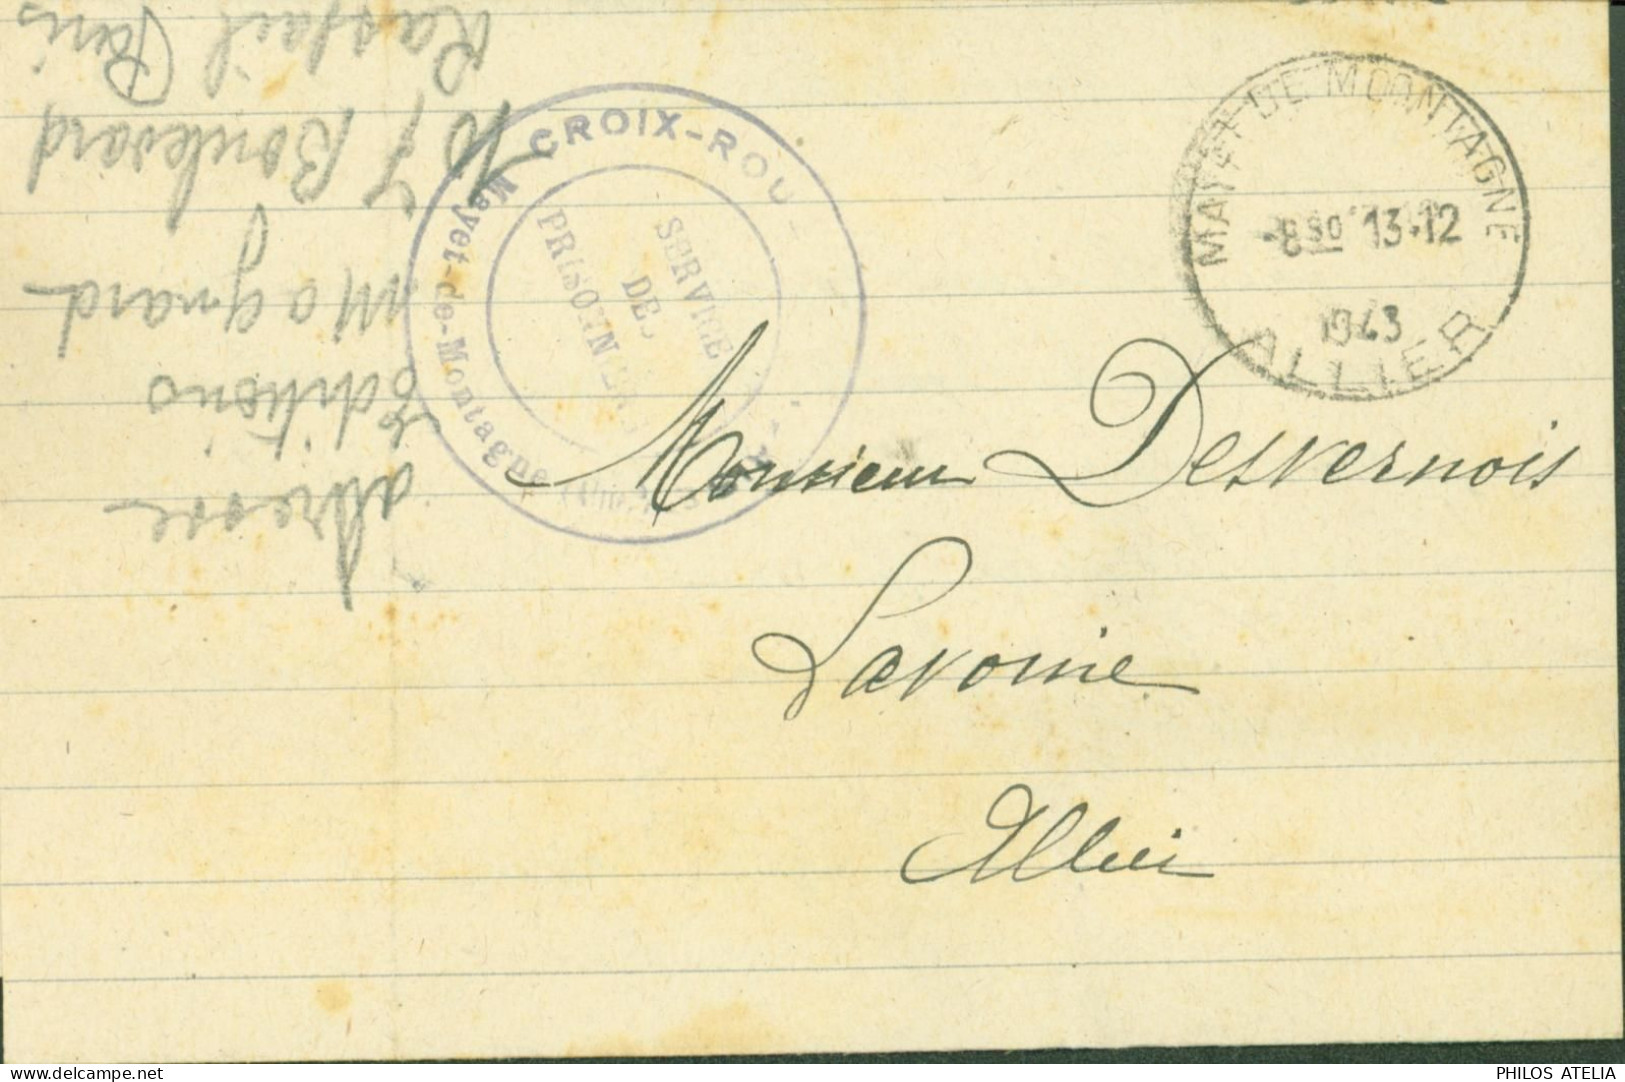 MAYET DE MONTAGNE
-8 30 13·12
1943
ALLIER
CROIX-ROU
Mayet-de-Montagne
SERVICE
DES
PRISONNIERS
Monsieur Desvernois
Lavoine
Allier
adresse
Editions
Magnard
Boulevard
Raspail Paris
PHILOS ATELIA